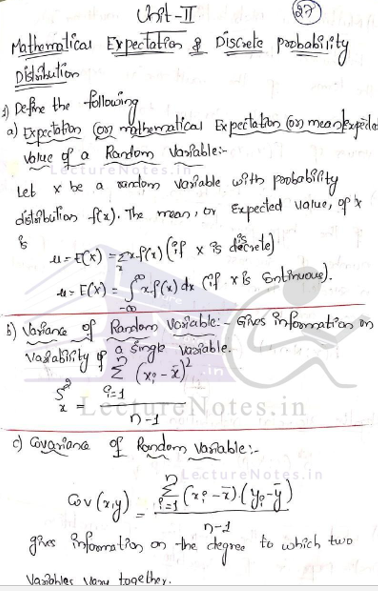 Unit-II
27
Mathematical Expectation & Discrete probability
Distribution
1) Define the following
a) Expectation (or) mathematical Expectation (or) mean/expected
value of a Random Variable:-
Let x be a random variable with probability
distribution f(x). The mean, or Expected value, of x
is
μ = E(x) = Σ x f(x) (if x is discrete)
x
μ = E(x) = ∫ x f(x) dx (if x is Continuous).
∞
-∞
b) Variance of Random Variable:- Gives information on
Variability of a single variable.
S²x = Σ (xi - x̄)² / n-1
n
i=1
LectureNotes.in
c) Covariance of Random Variable:-
LectureNotes.in
Cov (x,y) = Σ (xi - x̄) (yi - ȳ) / n-1
n
i=1
gives information on the degree to which two
Variables vary together.